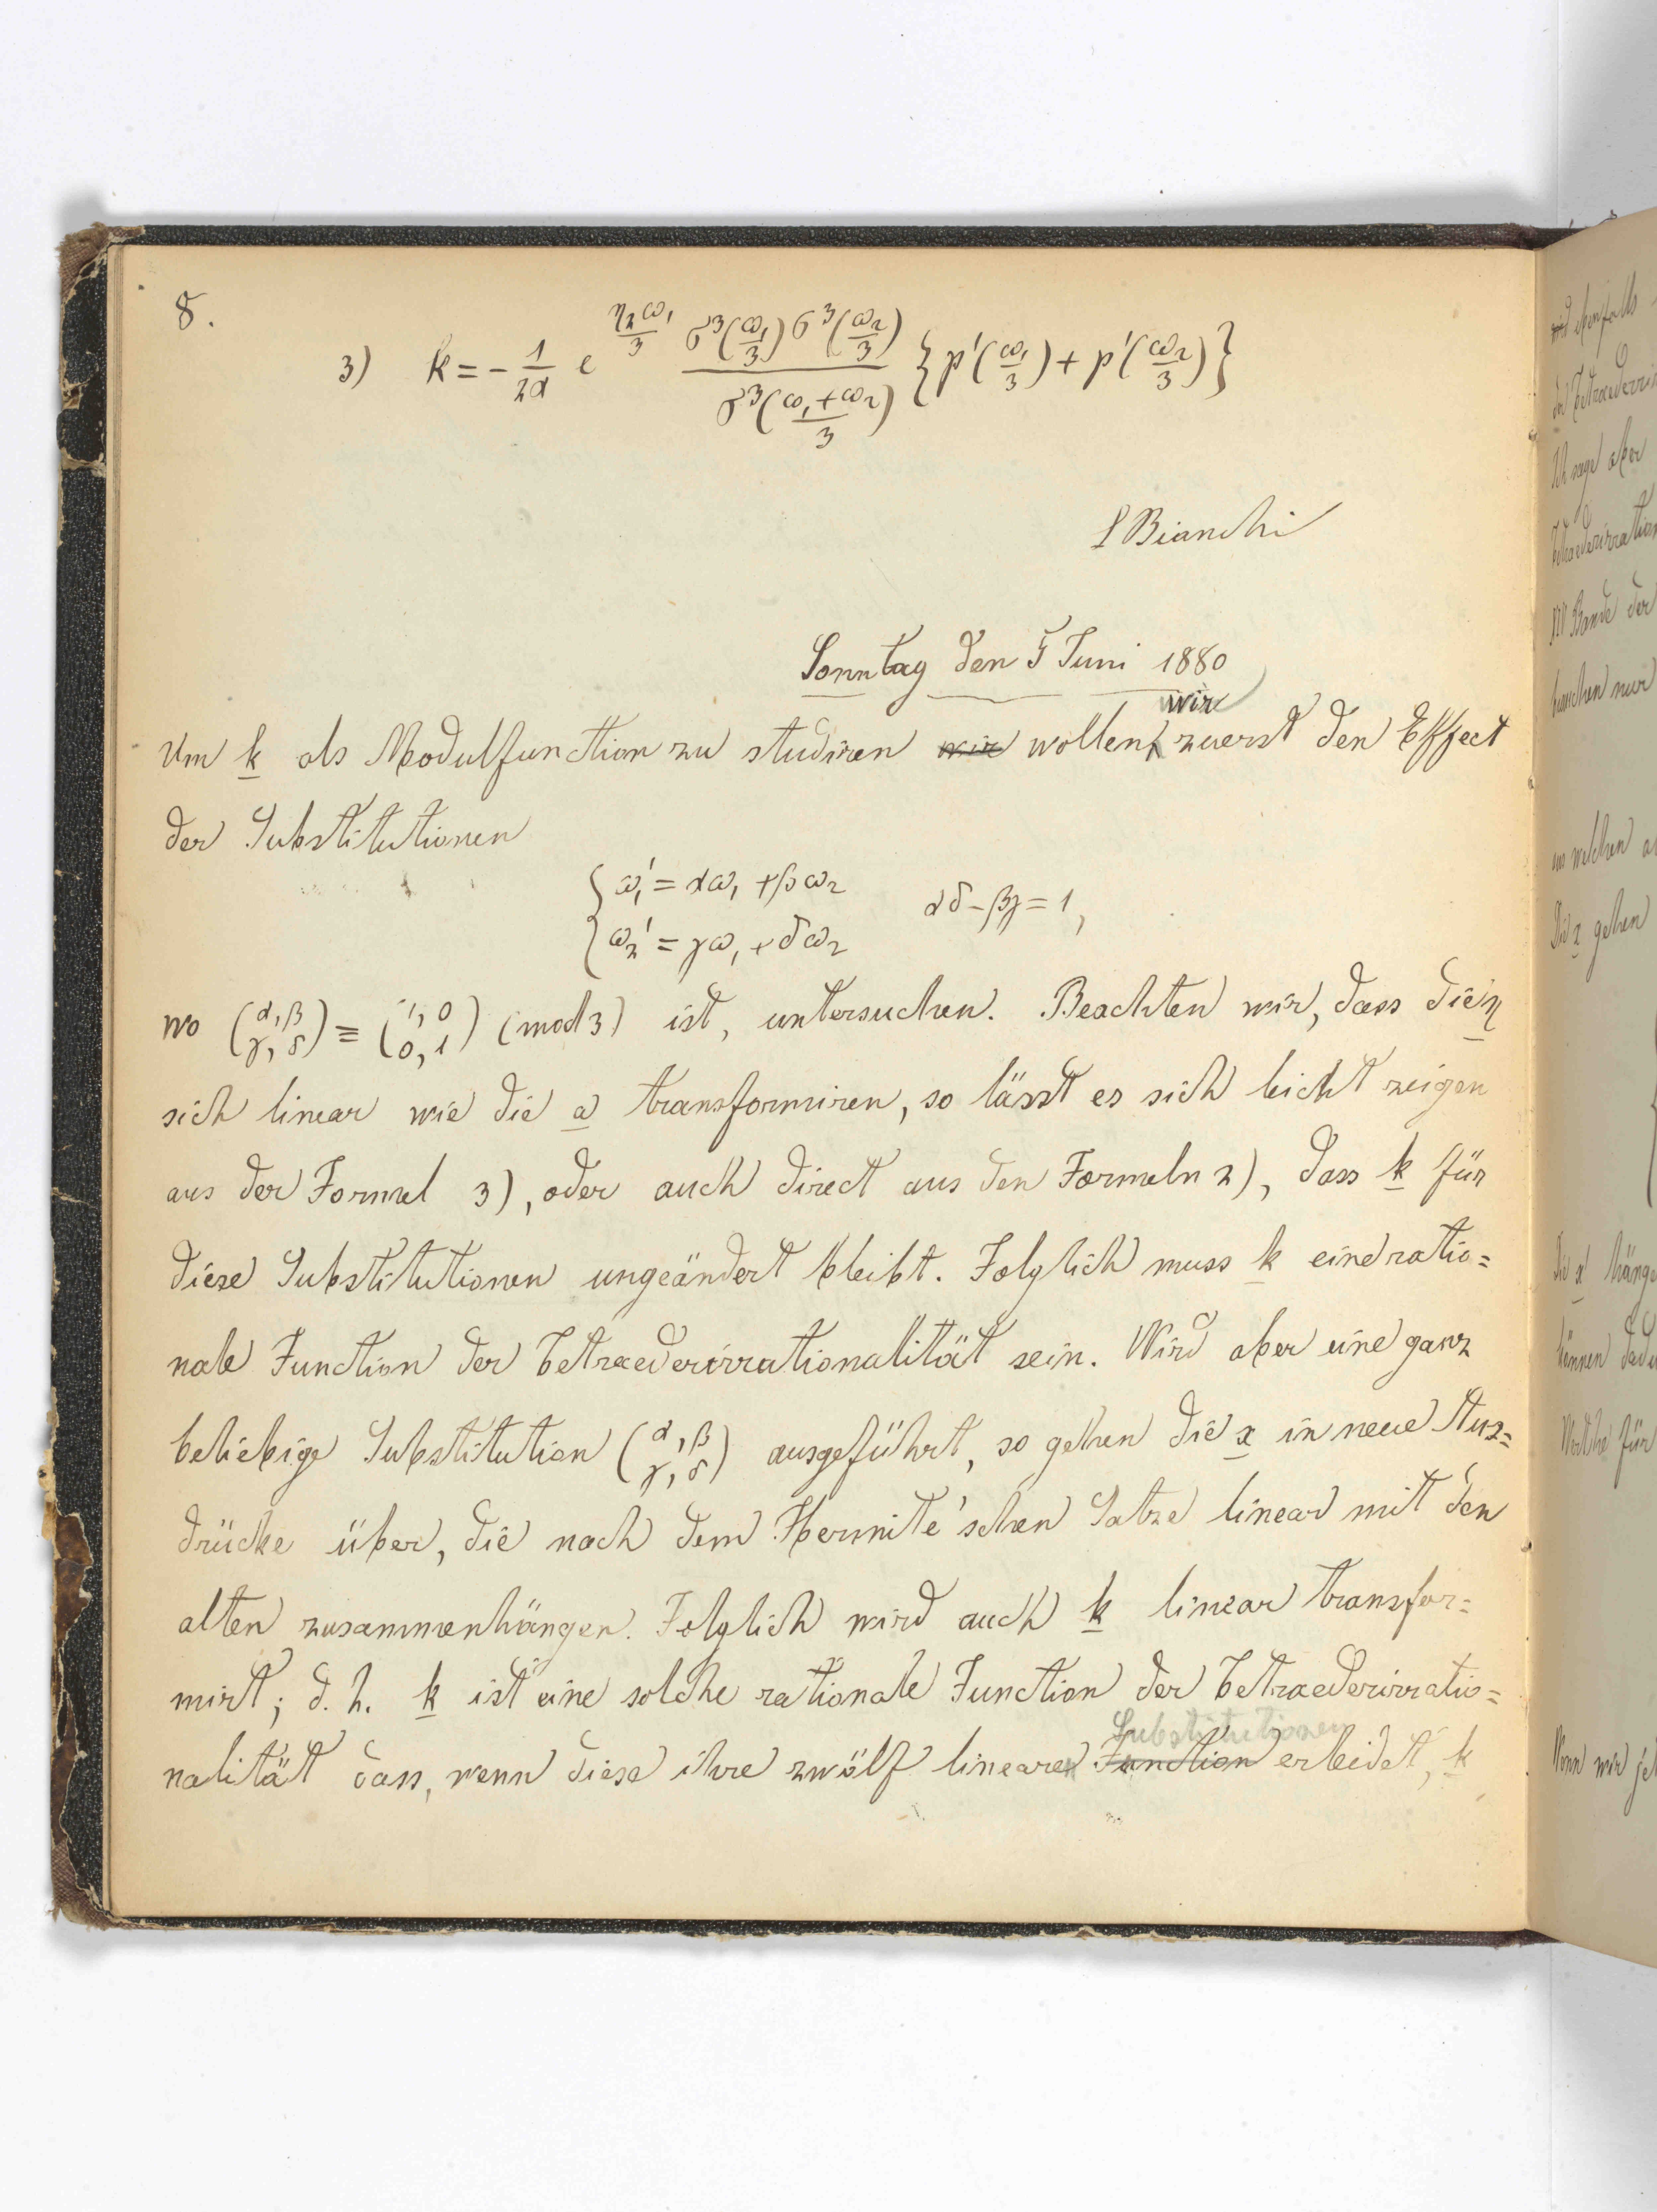 8.
3) k = - 1/2α e^{η₂ω₁/3} σ³(ω₁/3) σ³(ω₂/3) / σ³((ω₁+ω₂)/3) {p'(ω₁/3) + p'(ω₂/3)}
L Bianchi
Sonntag den 5 Juni 1880
wir
Um k als Modulfunction zu studiren wir wollen, zuerst den Effect
der Substitutionen
{ω₁' = αω₁ + βω₂ αδ - βγ = 1,
{ω₂' = γω₁ + δω₂
wo (α,β γ,δ) ≡ (1,0 0,1) (mod 3) ist, untersuchen. Beachten wir, dass die η
sich linear wie die ω transformiren, so lässt es sich leicht zeigen
aus der Formel 3), oder auch direct aus den Formeln 2), dass k für
diese Substitutionen ungeändert bleibt. Folglich muss k eine ratio=
nale Function der Tetraederirrationalität sein. Wird aber eine ganz
beliebige Substitution (α,β γ,δ) ausgeführt, so gehen die x in neue Aus=
drücke über, die nach dem Hermite'schen Satze linear mit den
alten zusammenhängen. Folglich wird auch k linear transfor=
mirt; d. h. k ist eine solche rationale Function der Tetraederirratio=
Substitutionen
nalität dass, wenn diese ihre zwölf linearen Function erleidet, k
wird ebenfalls
der Tetraederirr
Ich sage aber
Tetraederirration
XIV Bande der
brauchen nur
aus welchen
Die x gehen
die x hänge
können
Werthe für
Wenn wir